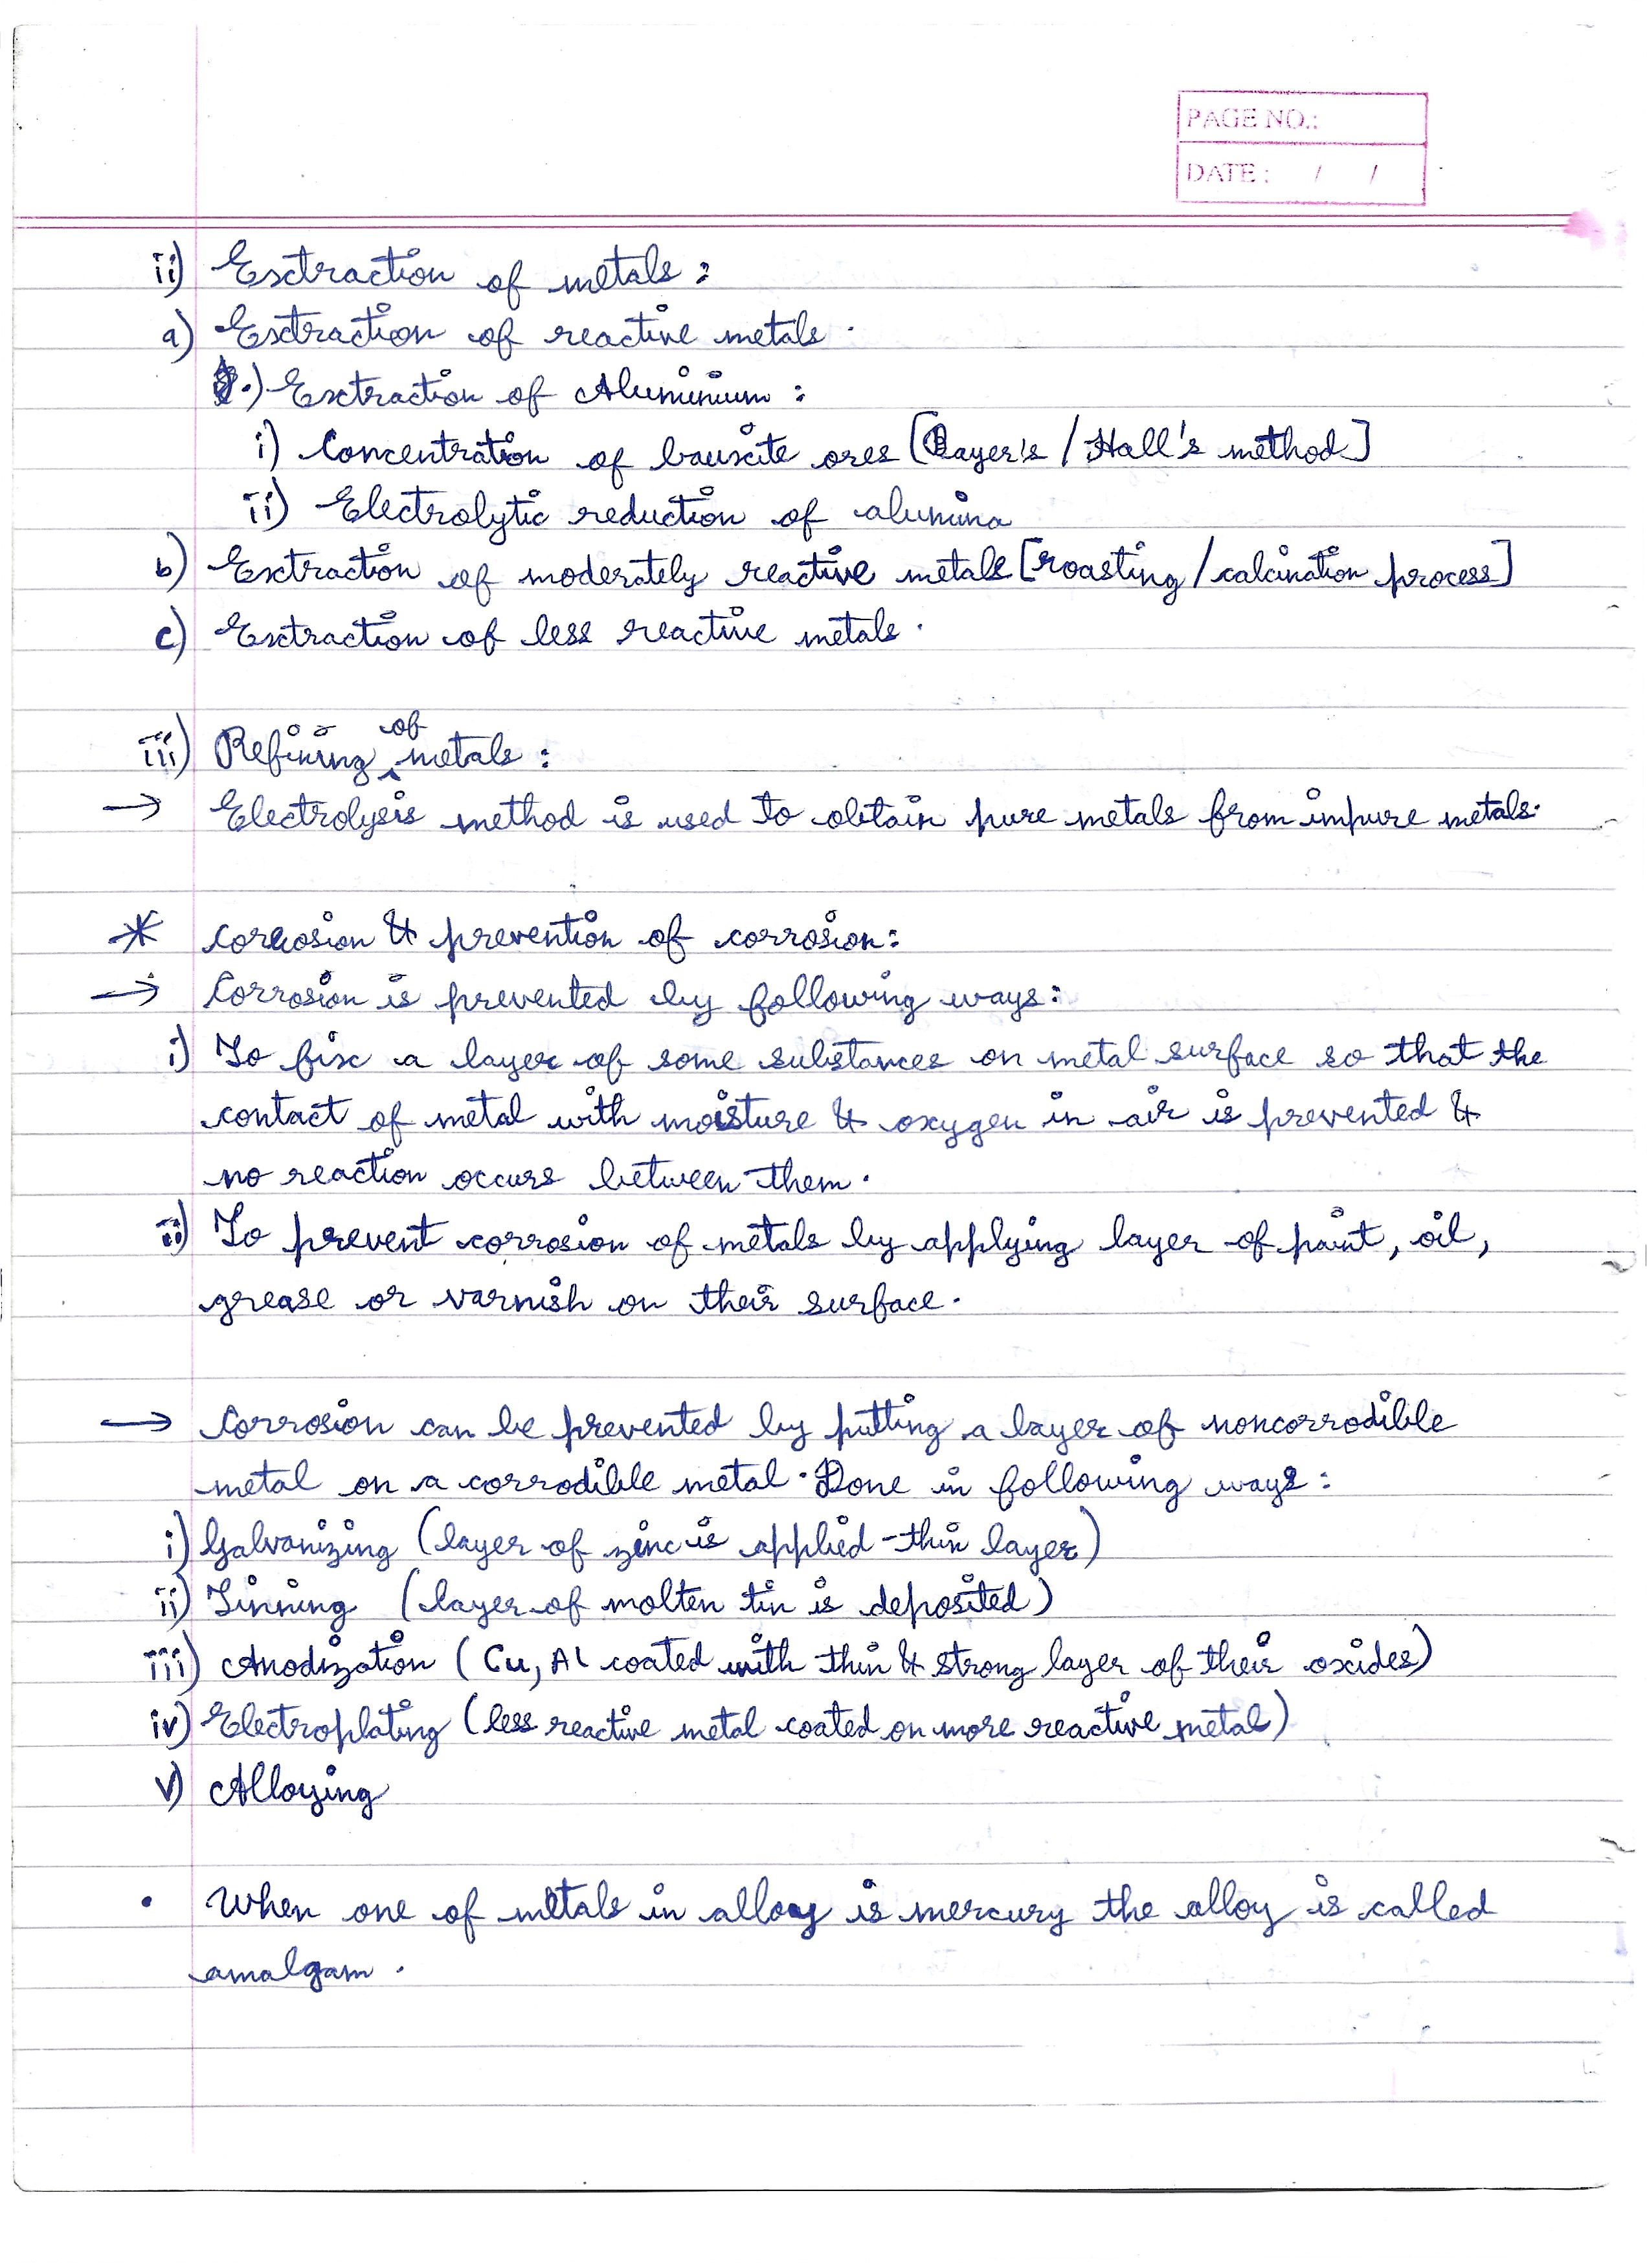 PAGE NO.:
DATE: / /
ii) Extraction of metals:
a) Extraction of reactive metals.
.) Extraction of Aluminium:
i) Concentration of bauxite ores [Bayer's / Hall's method]
ii) Electrolytic reduction of alumina
b) Extraction of moderately reactive metals [roasting / calcination process]
c) Extraction of less reactive metals.
iii) Refining of metals:
→ Electrolysis method is used to obtain pure metals from impure metals.
* Corrosion & prevention of corrosion:
→ Corrosion is prevented by following ways:
i) To fix a layer of some substances on metal surface so that the
contact of metal with moisture & oxygen in air is prevented &
no reaction occurs between them.
ii) To prevent corrosion of metals by applying layer of paint, oil,
grease or varnish on their surface.
→ Corrosion can be prevented by putting a layer of noncorrodible
metal on a corrodible metal. Done in following ways:
i) Galvanizing (layer of zinc is applied - thin layer)
ii) Tinning (layer of molten tin is deposited)
iii) Anodization (Cu, Al coated with thin & strong layer of their oxides)
iv) Electroplating (less reactive metal coated on more reactive metal)
v) Alloying
• When one of metals in alloy is mercury the alloy is called
amalgam.